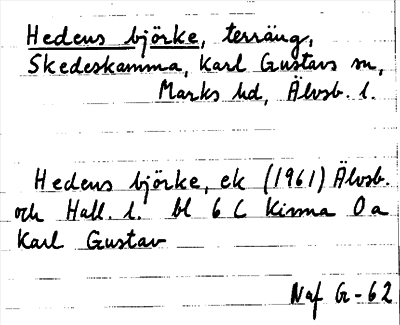 Hedens björke, terräng,
Skedeskamma, Karl Gustavs sn,
Marks hd, Älvsb. l.
Hedens björke, ek (1961) Älvsb.
och Hall. l. bl 6 C Kinna 0 a
Karl Gustav
Naf G-62